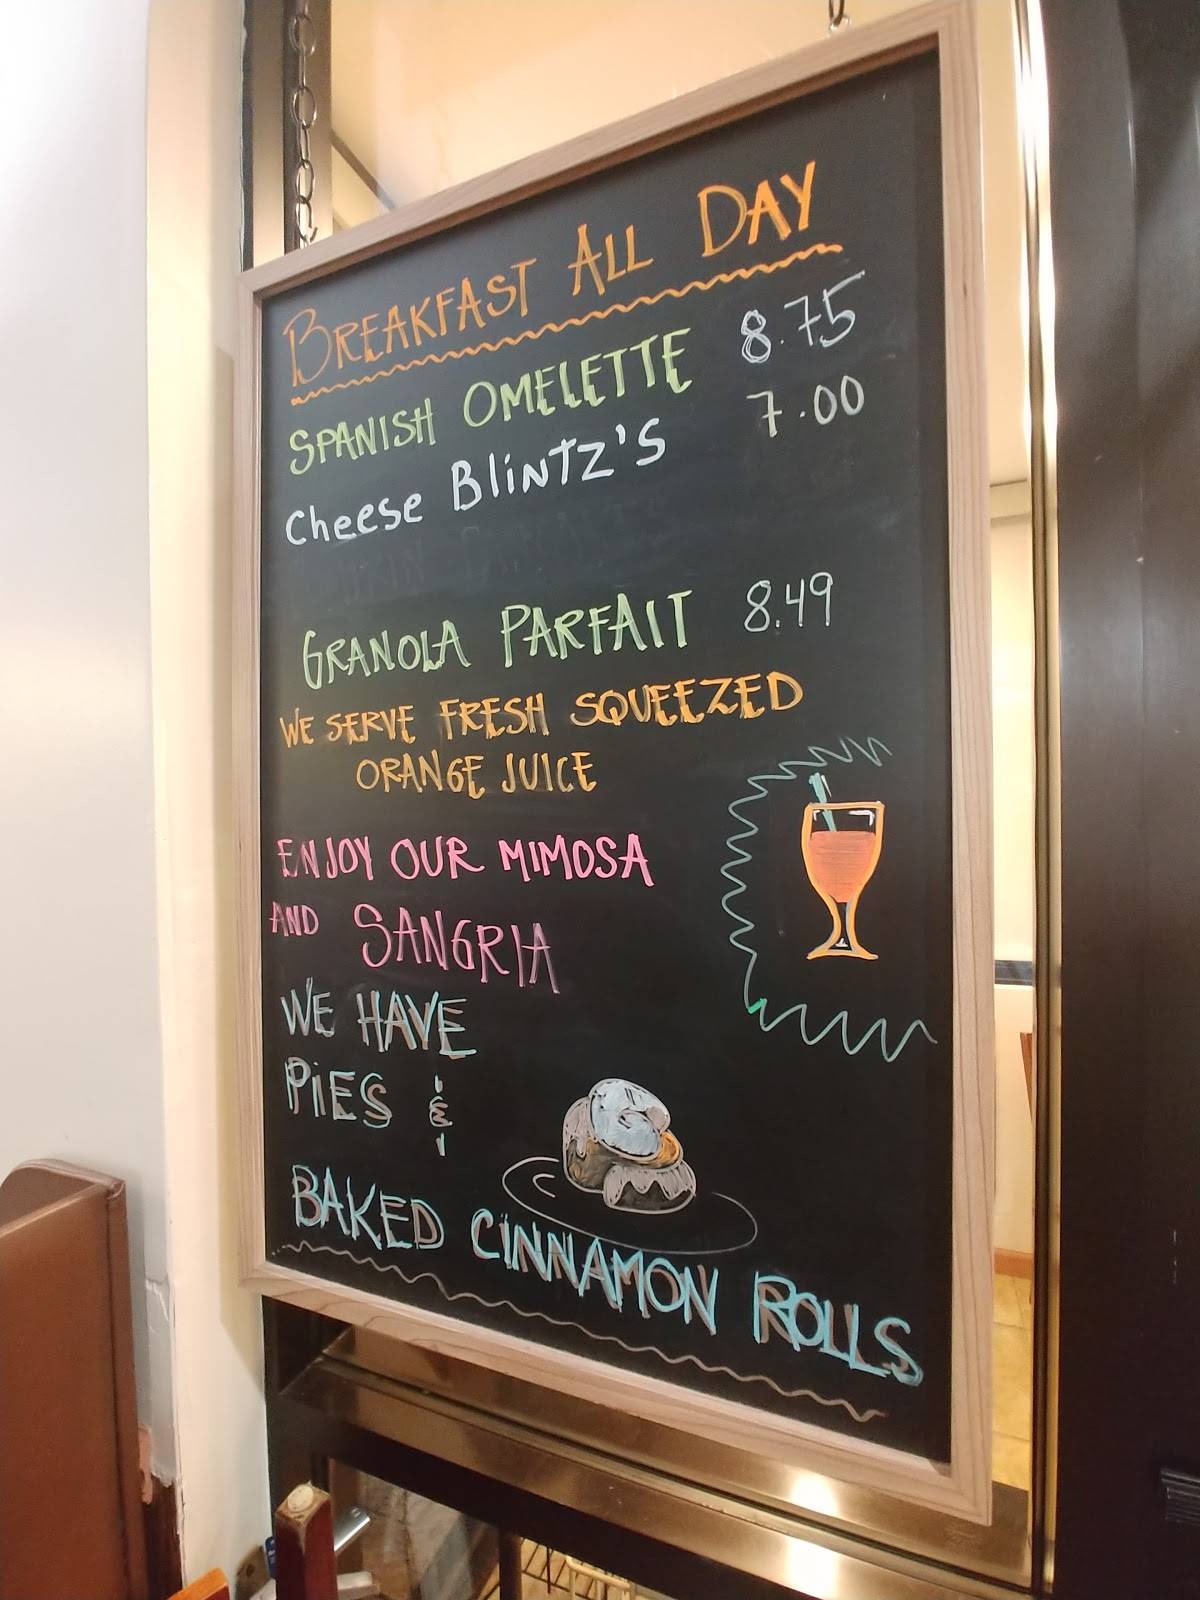 BREAKFAST ALL DAY
SPANISH OMELETTE 8.75
Cheese BliNTZ'S 7.00
GRANOLA PARFAIT 8.49
WE SERVE FRESH SQUEEZED
ORANGE JUICE
ENJOY OUR MIMOSA
AND SANGRIA
WE HAVE
PiES &
BAKED CINNAMON ROLLS